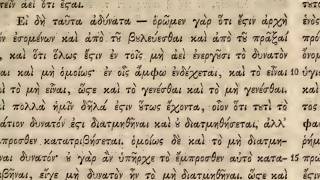 τεῖν ἀεὶ ὅτι ἔσται.
Εἰ δὴ ταῦτα ἀδύνατα — ὁρῶμεν γὰρ ὅτι ἔστιν ἀρχὴ
ἐσομένων καὶ ἀπὸ τοῦ βουλεύεσθαι καὶ ἀπὸ τοῦ πρᾶξαί
καὶ ὅτι ὅλως ἔστιν ἐν τοῖς μὴ ἀεὶ ἐνεργοῦσι τὸ δυνατὸν
καὶ μὴ ὁμοίως· ἐν οἷς ἄμφω ἐνδέχεται, καὶ τὸ εἶναι 10
τὸ μὴ εἶναι, ὥστε καὶ τὸ γενέσθαι καὶ τὸ μὴ γενέσθαι.
πολλὰ ἡμῖν δῆλά ἐστιν οὕτως ἔχοντα, οἷον ὅτι τουτὶ τὸ
ἱμάτιον δυνατόν ἐστι διατμηθῆναι καὶ οὐ διατμηθήσεται, ἀλλ'
ἔμπροσθεν κατατριβήσεται. ὁμοίως δὲ καὶ τὸ μὴ διατμη-
θῆναι δυνατόν· οὐ γὰρ ἂν ὑπῆρχε τὸ ἔμπροσθεν αὐτὸ κατα- 15
τριβῆναι, εἴγε μὴ δυνατὸν ἦν τὸ μὴ διατμηθῆναι. ὥστε καὶ